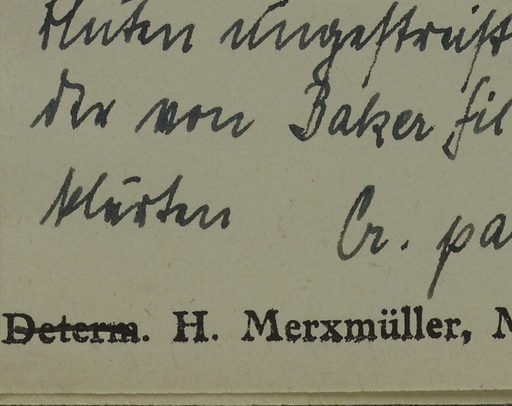 Blüten ungestreift
der von Baker fil
klärten Cr. pa
Determ. H. Merxmüller, M